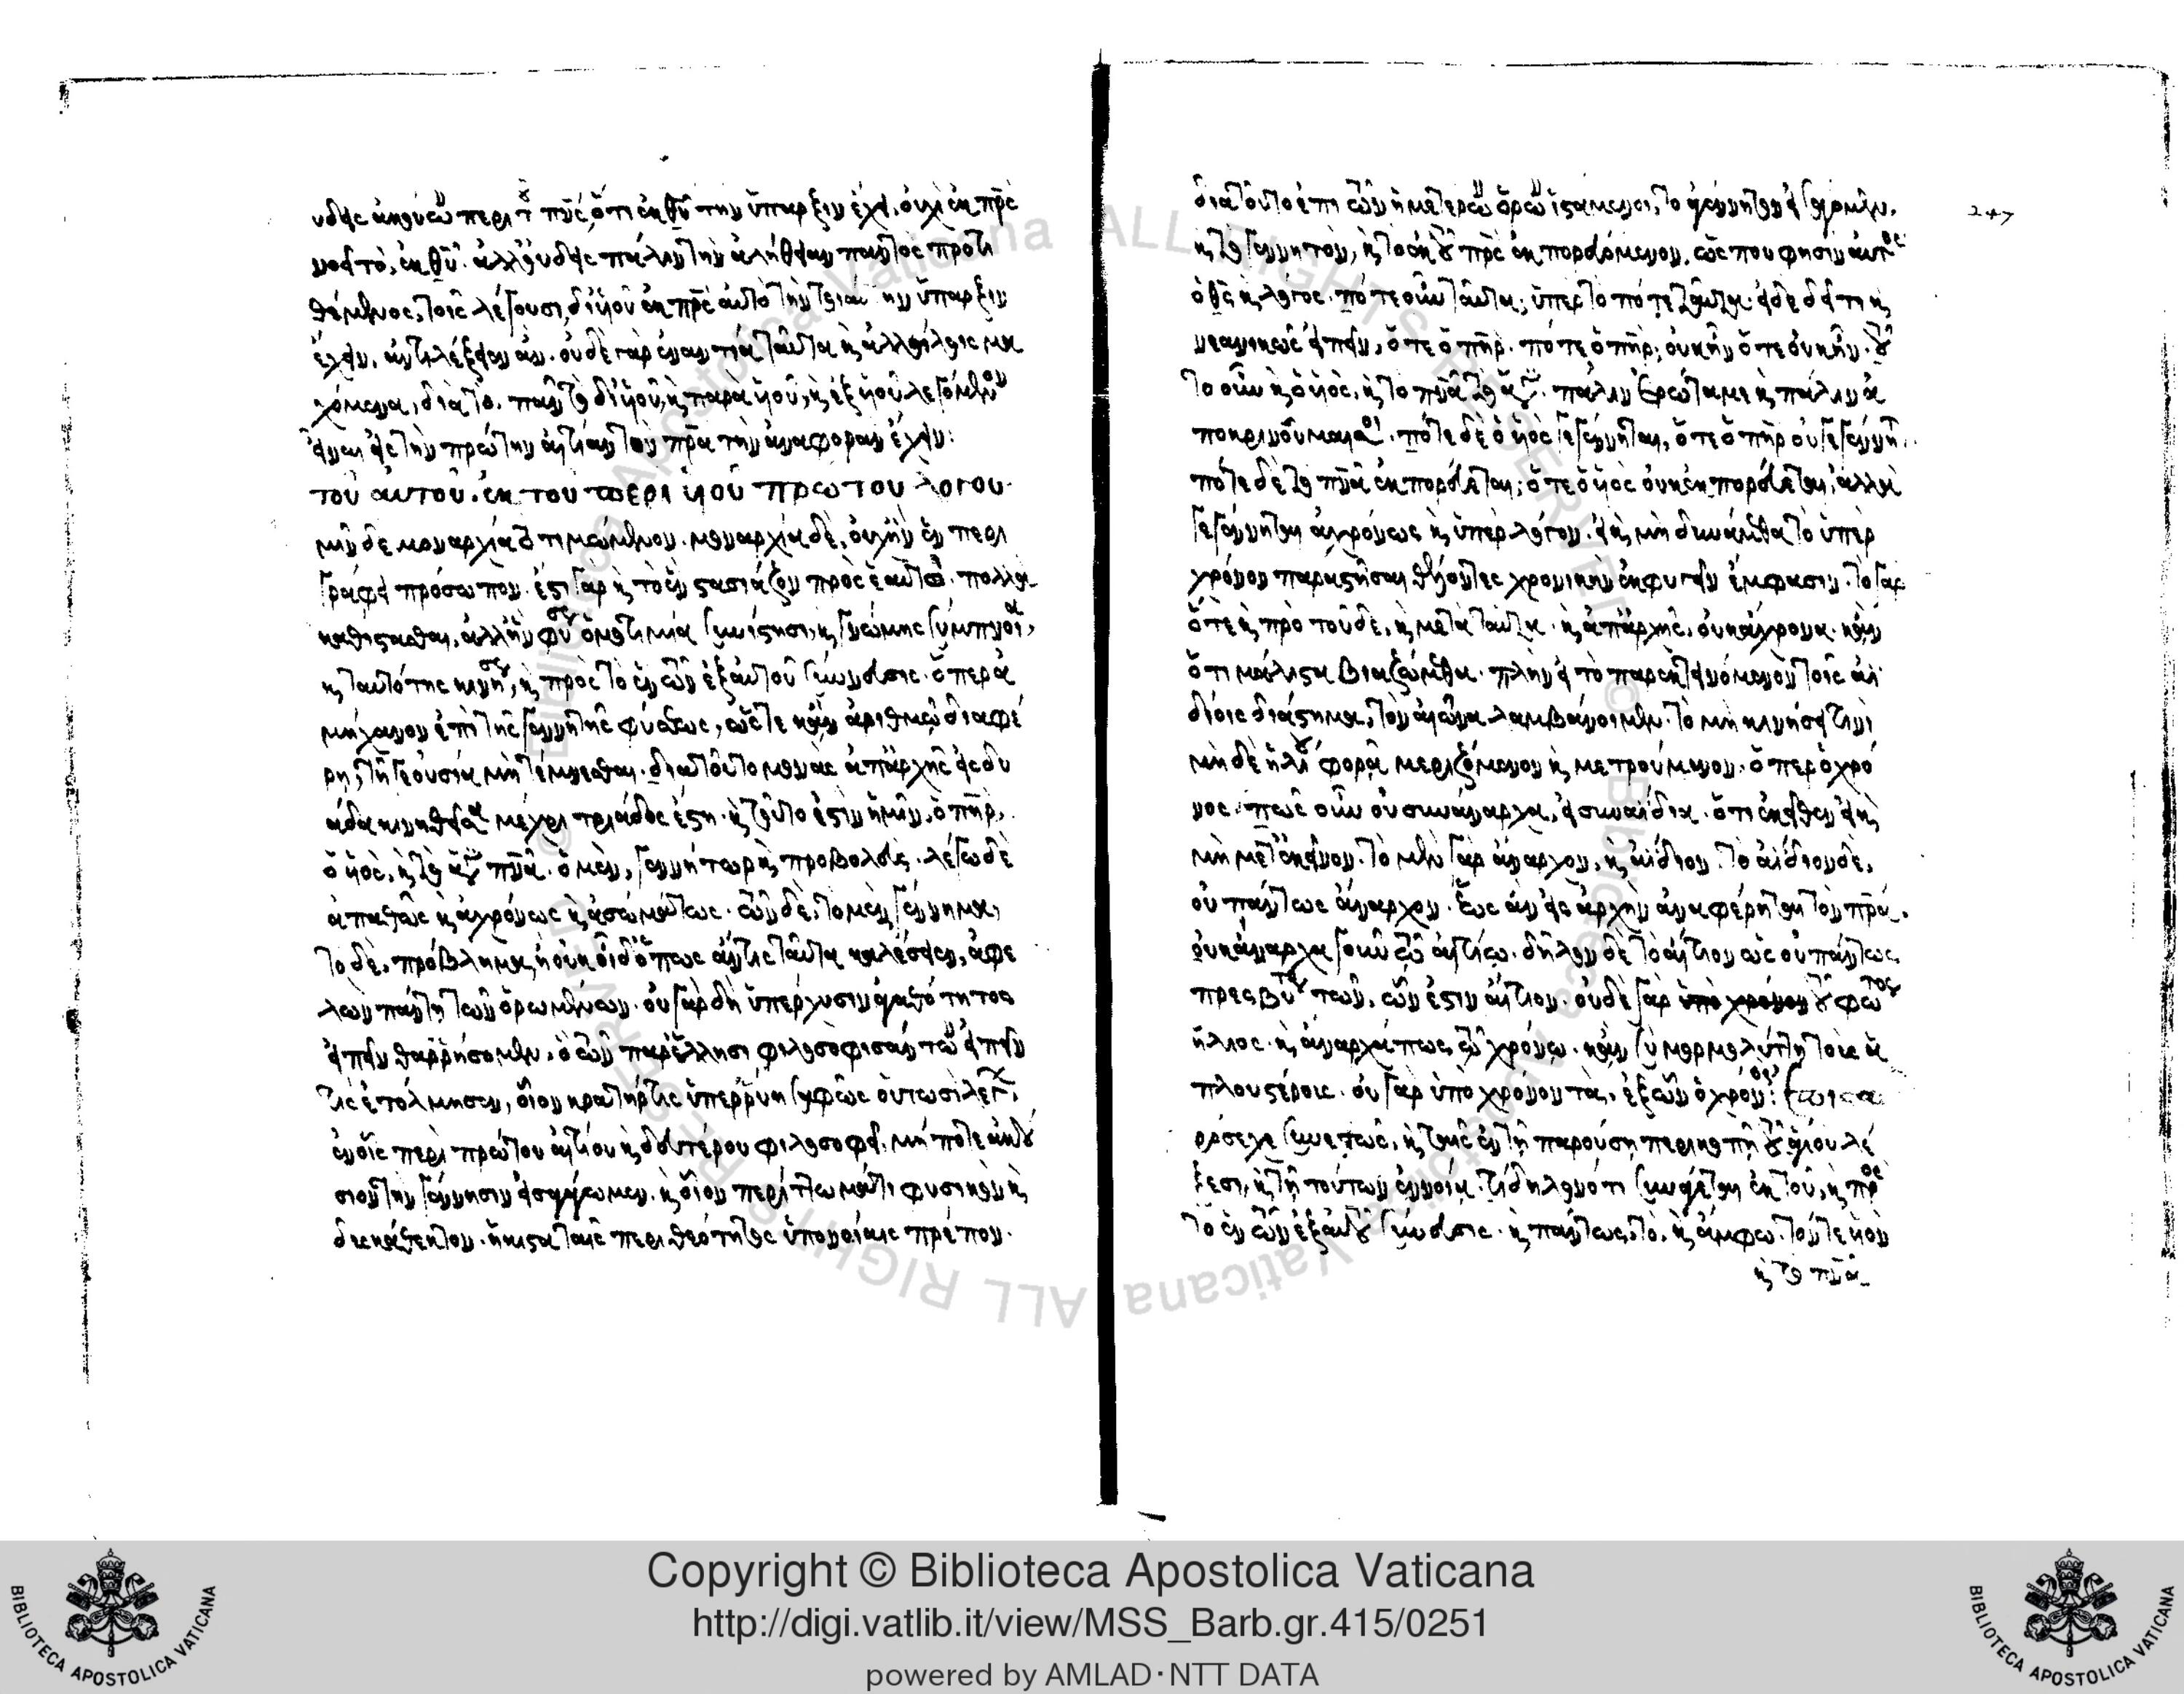 υδεὶς ἀκηκοὼς περὶ τοῦ πνς, ὅτι ἐκ θυ τὴν ὕπαρξιν ἔχει, οὐχὶ ἐκ πρς
θέμενος, τοῖς λέγουσι, δι' υἱοῦ ἐκ πρς αὐτὸ τὴν ὕπαρξιν
ἔχειν, ἀντιλέξειεν ἄν. οὐδὲ γὰρ ἐναντία ταῦτα κ ἀλλήλοις μα
χόμενα, διὰ τὸ
εἶναι εἰς τὴν πρώτην αἰτίαν τὸν πρα τὴν ἀναφορὰν ἔχειν:
τοῦ αὐτοῦ. ἐκ τοῦ περὶ υἱοῦ πρώτου λόγου.
μῖν δὲ μοναρχία τὸ τιμώμενον. μοναρχία δὲ, οὐχ ἣν ἓν περι
γράφει πρόσωπον. ἔστι γὰρ κ τὸ ἓν στασιάζον πρὸς ἑαυτὸ. πολλὰ
καθίστασθαι, ἀλλ' ἣν φύσεως ὁμοτιμία συνίστησι, κ γνώμης σύμπνοια,
κ ταυτότης κινήσεως, κ πρὸς τὸ ἓν τῶν ἐξ αὐτοῦ σύννευσις. ὅπερ ἀ
μήχανον ἐπὶ τῆς γεννητῆς φύσεως, ὥστε κἂν ἀριθμῷ διαφέ
ρη, τῆ γε οὐσία μὴ τέμνεσθαι. διὰ τοῦτο μονὰς ἀπ' ἀρχῆς εἰς δυ
άδα κινηθεῖσα μέχρι τριάδος ἔστη. κ τοῦτό ἐστιν ἡμῖν, ὁ πηρ,
ὁ υἱὸς, κ τὸ ἅγιον πνα. ὁ μὲν, γεννήτωρ κ προβολεύς. λέγω δὲ
ἀπαθῶς κ ἀχρόνως κ ἀσωμάτως. τῶν δὲ, τὸ μὲν γέννημα,
τὸ δὲ, πρόβλημα, ἢ οὐκ οἶδ' ὅπως ἄν τις ταῦτα καλέσειεν, ἀφε
λὼν πάντη τῶν ὁρωμένων. οὐ γὰρ δὴ ὑπέρχυσιν ἀγαθότητος
εἰπεῖν θαρρήσομεν, ὃ τῶν παρ' ἕλλησι φιλοσοφισάντων εἰπεῖν
τις ἐτόλμησεν, οἷον κρατήρ τις ὑπερρύη σαφῶς οὑτωσὶ λέγων
ἐν οἷς περὶ πρώτου αἰτίου κ δευτέρου φιλοσοφεῖ. μή ποτε ἀκού
σιον τὴν γέννησιν εἰσαγάγωμεν, κ οἷον περίττωμά τι φυσικὸν κ
δυσκάθεκτον. ἥκιστα ταῖς περὶ θεότητος ὑπονοίαις πρέπον.
247
διὰ τοῦτο ἐπὶ τῶν ἡμετέρων ὅρων ἱστάμενοι, τὸ ἀγέννητον εἰσάγομεν,
κ τὸ γεννητὸν, κ τὸ ἐκ τοῦ πρς ἐκπορευόμενον, ὥς που φησὶν αὐτὸς
ὁ θς κ λόγος. πότε οὖν ταῦτα; ὑπὲρ τὸ πότε ταῦτα. εἰ δὲ δεῖ τι κ
νεανικῶς εἰπεῖν, ὅτε ὁ πηρ. πότε ὁ πηρ; οὐκ ἦν ὅτε οὐκ ἦν. τοῦ
το οὖν κ ὁ υἱὸς, κ τὸ πνα τὸ ἅγιον. πάλιν ἐρώτα με κ πάλιν ἀ
ποκρινοῦμαί σοι. πότε δὲ ὁ υἱὸς γεγέννηται, ὅτε ὁ πηρ οὐ γεγέννη
πότε δὲ τὸ πνα ἐκπορεύεται; ὅτε ὁ υἱὸς οὐκ ἐκπορεύεται, ἀλλὰ
γεγέννηται ἀχρόνως κ ὑπὲρ λόγον. εἰ κ μὴ δυνάμεθα τὸ ὑπὲρ
χρόνον παραστῆσαι θέλοντες χρονικὴν ἐκφυγεῖν ἔμφασιν. τὸ γὰρ
ὅτε κ πρὸ τοῦδε, κ μετὰ ταῦτα. κ ἀπ' ἀρχῆς, οὐκ ἄχρονα. κἂν
ὅτι μάλιστα βιαζώμεθα. πλὴν εἰ τὸ παρεκτεινόμενον τοῖς ἀϊ
δίοις διάστημα, τὸν αἰῶνα λαμβάνοιμεν. τὸ μὴ κινήσει τινὶ
μὴ δὲ ἡλίου φορᾷ μεριζόμενον κ μετρούμενον. ὅπερ ὁ χρό
νος. πῶς οὖν οὐ συνάναρχα, εἰ συναΐδια. ὅτι ἐκεῖθεν εἰ κ
μὴ μετ' ἐκεῖνον. τὸ μὲν γὰρ ἄναρχον, κ ἀΐδιον. τὸ ἀΐδιον δὲ,
οὐ πάντως ἄναρχον. ἕως ἂν εἰς ἀρχὴν ἀναφέρηται τὸν πρα.
οὐκ ἄναρχα γοῦν τῷ αἰτίῳ. δῆλον δὲ τὸ αἴτιον ὡς οὐ πάντως
πρεσβύτερον τῶν, ὧν ἐστιν αἴτιον. οὐδὲ γὰρ τοῦ φωτὸς
ἥλιος. κ ἄναρχά πως τῷ χρόνῳ. κἂν σὺ μορμολύττη τοὺς ἁ
πλουστέρους. οὐ γὰρ ὑπὸ χρόνον τὰ, ἐξ ὧν ὁ χρόνος:
ρόσεχε συνετῶς, κ ταῖς ἐν τῆ παρούση περικοπῆ τοῦ ἁγίου λέ
ξεσι, κ τῆ τούτων ἐννοία.
τὸ ἓν τῶν ἐξ αὐτοῦ σύννευσις. κ πάντως, τὸ, κ ἄμφω. τόν τε υἱὸν
κ τὸ πνα
Copyright © Biblioteca Apostolica Vaticana
http://digi.vatlib.it/view/MSS_Barb.gr.415/0251
powered by AMLAD·NTT DATA
BIBLIOTECA APOSTOLICA VATICANA
BIBLIOTECA APOSTOLICA VATICANA